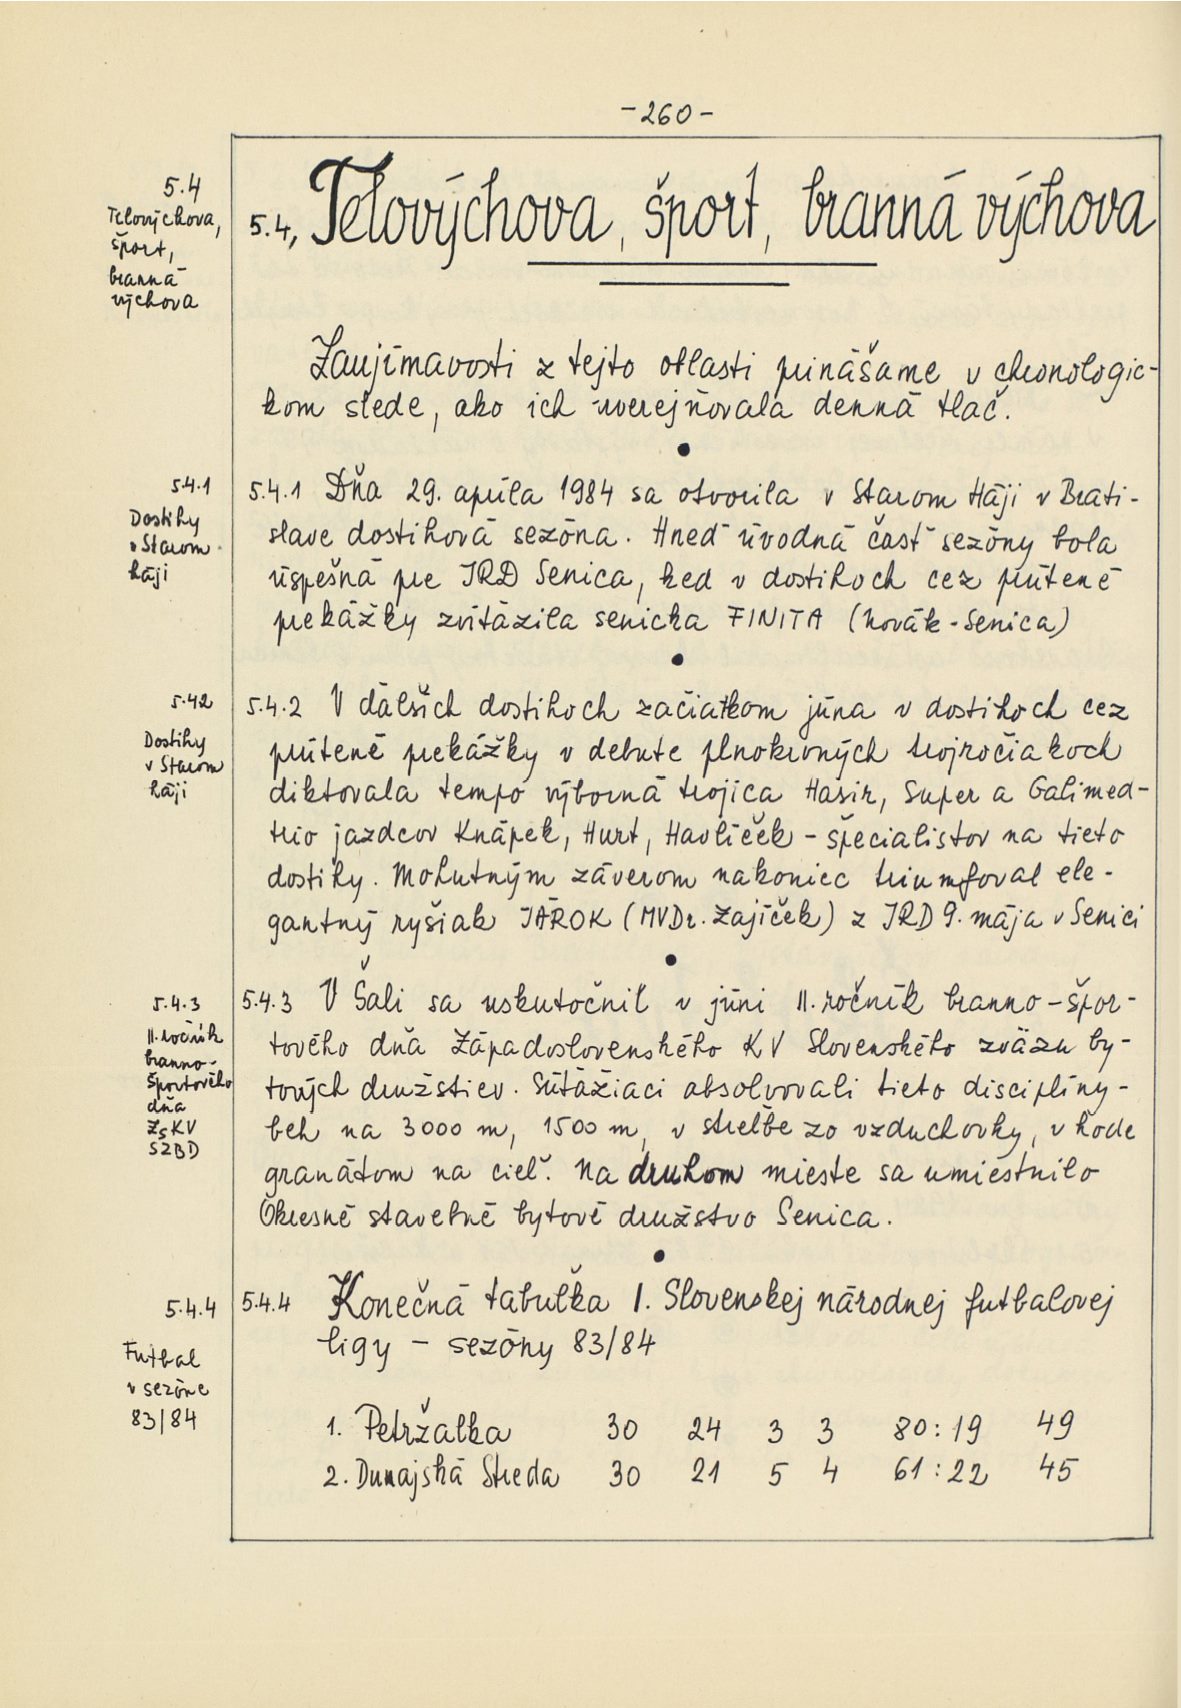 -260-
5.4
Telovýchova,
šport,
branná
výchova
5.4, Telovýchova, šport, branná výchova
Zaujímavosti z tejto oblasti prinášame v chronologic-
kom slede, ako ich uverejňovala denná tlač.
5.4.1
Dostihy
v Starom
háji
5.4.1 Dňa 29. apríla 1984 sa otvorila v Starom Háji v Brati-
slave dostihová sezóna. Hneď úvodná časť sezóny bola
úspešná pre JRD Senica, keď v dostihoch cez prútené
prekážky zvíťazila senická FINITA (Novák-Senica)
5.42
Dostihy
v Starom
háji
5.4.2 V ďalších dostihoch začiatkom júna v dostihoch cez
prútené prekážky v debute plnokrvných trojročiakoch
diktovala tempo výborná trojica Hasir, Super a Galimed-
trio jazdcov Knápek, Hurt, Havlíček - špecialistov na tieto
dostihy. Mohutným záverom nakoniec triumfoval ele-
gantný ryšiak JÁROK (MVDr. Zajíček) z JRD 9. mája v Senici
5.4.3
II. ročník
branno-
športového
dňa
ZsKV
SZBD
5.4.3 V Šali sa uskutočnil v júni II. ročník branno-špor-
tového dňa Západoslovenského KV Slovenského zväzu by-
tových družstiev. Súťažiaci absolvovali tieto disciplíny-
beh na 3000 m, 1500 m, v streľbe zo vzduchovky, v hode
granátom na cieľ. Na druhom mieste sa umiestnilo
Okresné stavebné bytové družstvo Senica.
5.4.4
Futbal
v sezóne
83/84
5.4.4 Konečná tabuľka I. Slovenskej národnej futbalovej
ligy - sezóny 83/84
1. Petržalka 30 24 3 3 80:19 49
2. Dunajská Streda 30 21 5 4 61:22 45